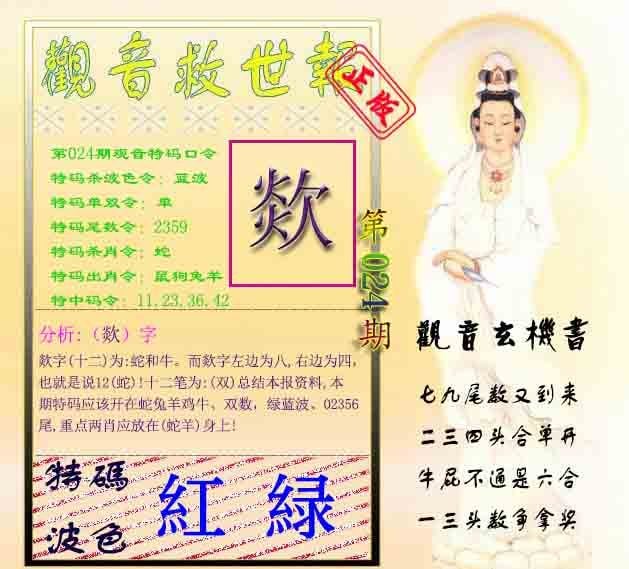 觀音救世報
正版
第024期观音特码口令
特码杀波色令：蓝波
特码单双令：单
特码尾数令：2359
特码杀肖令：蛇
特码出肖令：鼠狗兔羊
特中码令：11.23.36.42
欻
第024期
分析:（欻）字
欻字(十二)为:蛇和牛。而欻字左边为八,右边为四,
也就是说12(蛇)!十二笔为:(双)总结本报资料,本
期特码应该开在蛇兔羊鸡牛、双数，绿蓝波、02356
尾,重点两肖应放在(蛇羊)身上!
特碼
波色
紅 緑
觀音玄機書
七九尾数又到来
二三四头合单开
牛屁不通是六合
一三头数争拿奖